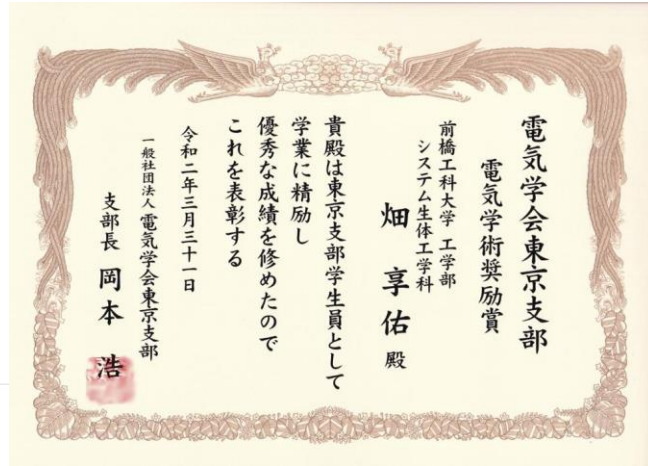 電気学会東京支部
電気学術奨励賞
前橋工科大学 工学部
システム生体工学科
畑 享佑 殿
貴殿は東京支部学生員として
学業に精励し
優秀な成績を修めたので
これを表彰する
令和二年三月三十一日
一般社団法人 電気学会東京支部
支部長 岡本 浩